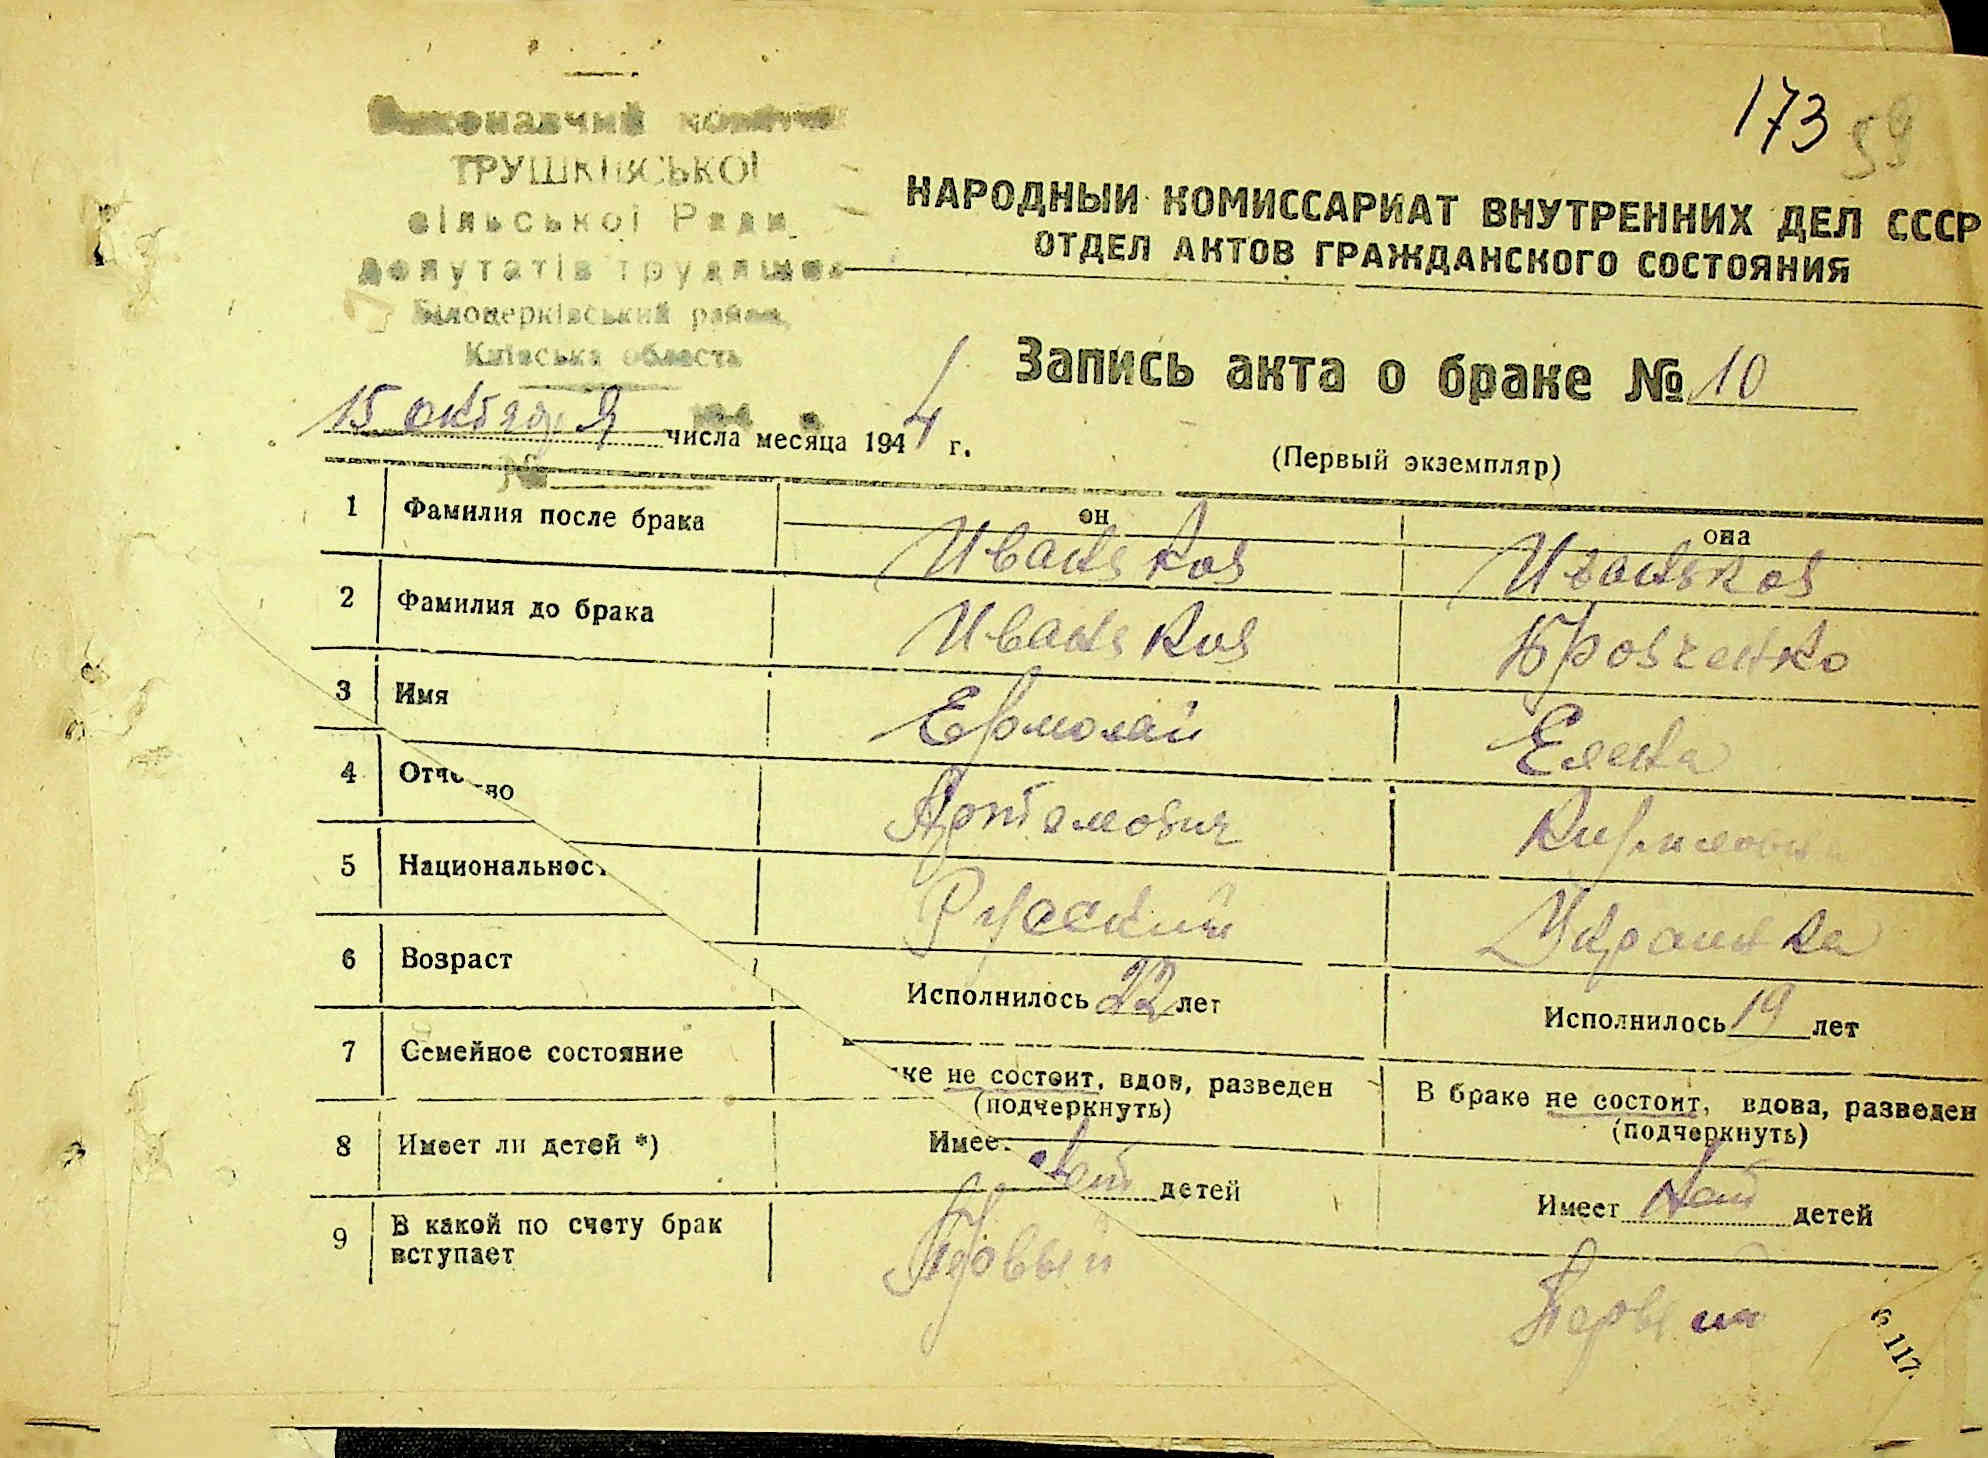 173 59
Виконавчий комітет
ТРУШКІВСЬКОЇ
сільської Ради
депутатів трудящих
Білоцерківський район,
Київська область
НАРОДНЫЙ КОМИССАРИАТ ВНУТРЕННИХ ДЕЛ СССР
ОТДЕЛ АКТОВ ГРАЖДАНСКОГО СОСТОЯНИЯ
Запись акта о браке № 10
15 октября числа месяца 1944 г.
(Первый экземпляр)
№
он она
1 Фамилия после брака Иваньков Иваньков
2 Фамилия до брака Иваньков
3 Имя Ермолай Елена
4 Отче во Артемович Кириловна
5 Национальнос Русский Украинка
6 Возраст Исполнилось 22 лет Исполнилось 19 лет
7 Семейное состояние ке не состоит, вдов, разведен В браке не состоит, вдова, разведен
(подчеркнуть) (подчеркнуть)
8 Имеет ли детей *) Имее нет детей Имеет нет детей
9 В какой по счету брак
вступает Первый Первый
6 117.